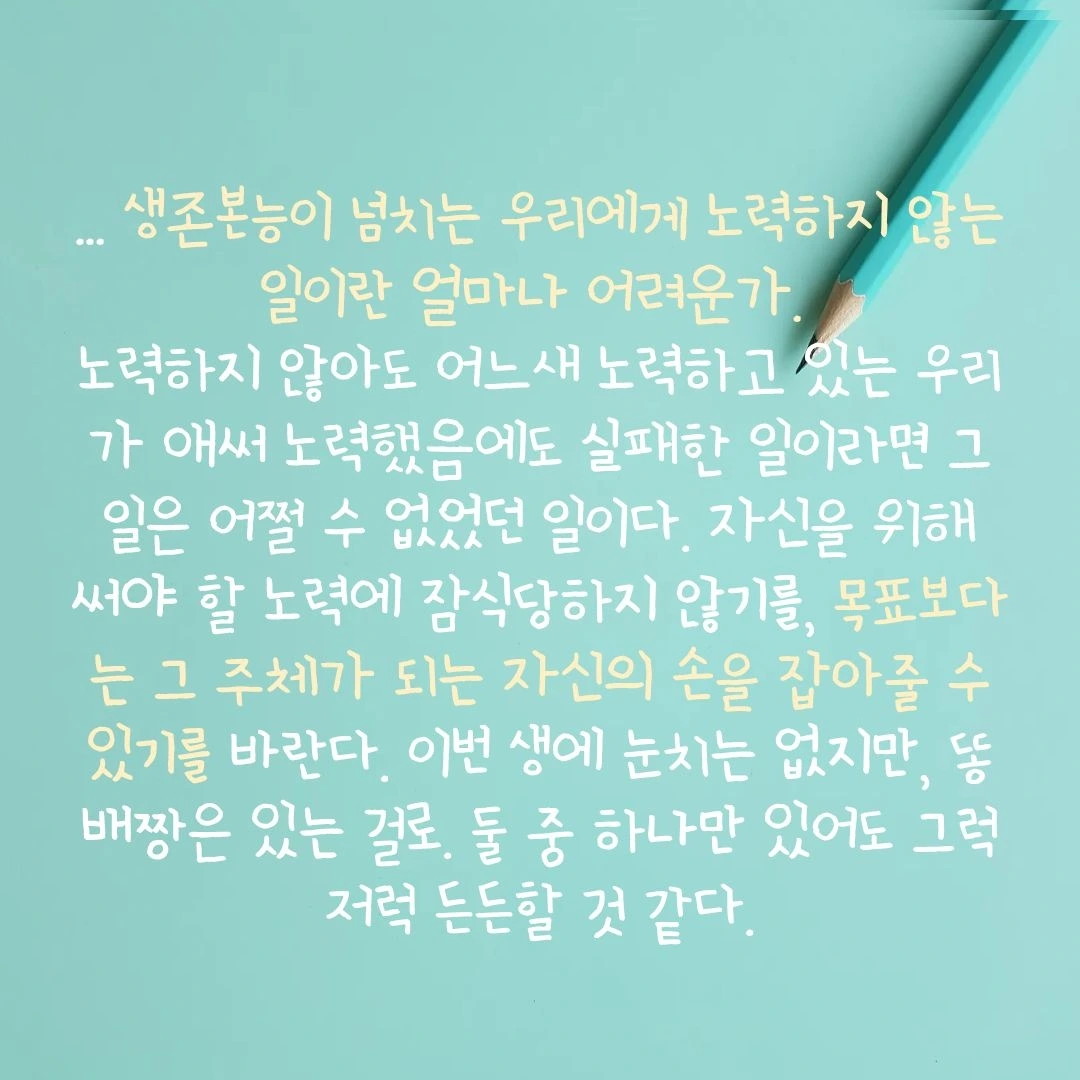 ... 생존본능이 넘치는 우리에게 노력하지 않는
일이란 얼마나 어려운가.
노력하지 않아도 어느새 노력하고 있는 우리
가 애써 노력했음에도 실패한 일이라면 그
일은 어쩔 수 없었던 일이다. 자신을 위해
써야 할 노력에 잠식당하지 않기를, 목표보다
는 그 주체가 되는 자신의 손을 잡아줄 수
있기를 바란다. 이번 생에 눈치는 없지만, 똥
배짱은 있는 걸로. 둘 중 하나만 있어도 그럭
저럭 든든할 것 같다.